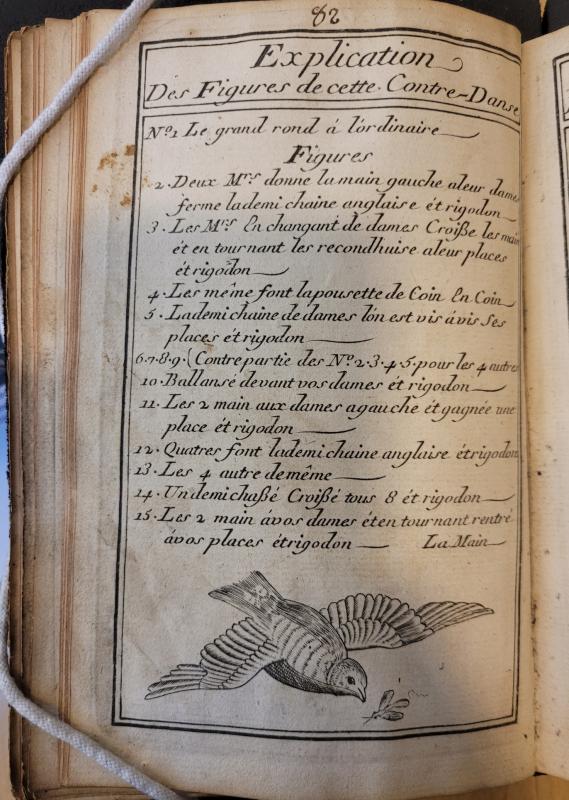 82
Explication
Des Figures de cette Contre-Danse
Nº1 Le grand rond á lórdinaire
Figures
2. Deux Mrs donne la main gauche a leur dame
ferme lademi chaine anglaise ét rigodon
3. Les Mrs En changant de dames Croiße les main
ét en tournant les recondhuise aleur places
ét rigodon
4. Les même font lapousette de Coin En Coin
5. Lademi chaine de dames lón est vis ávis Ses
places ét rigodon
6.7.8.9.{Contre partie des Nº 2.3.4.5.pour les 4 autres
10. Ballansé devant vos dames ét rigodon
11. Les 2 main aux dames agauche ét gagnée une
place ét rigodon
12. Quatres font lademi chaine anglaise ét rigodon
13. Les 4 autre demême
14. Un demi chaßé Croißé tous 8 ét rigodon
15. Les 2 main ávos dames ét en tournant rentré
ávos places ét rigodon La Main